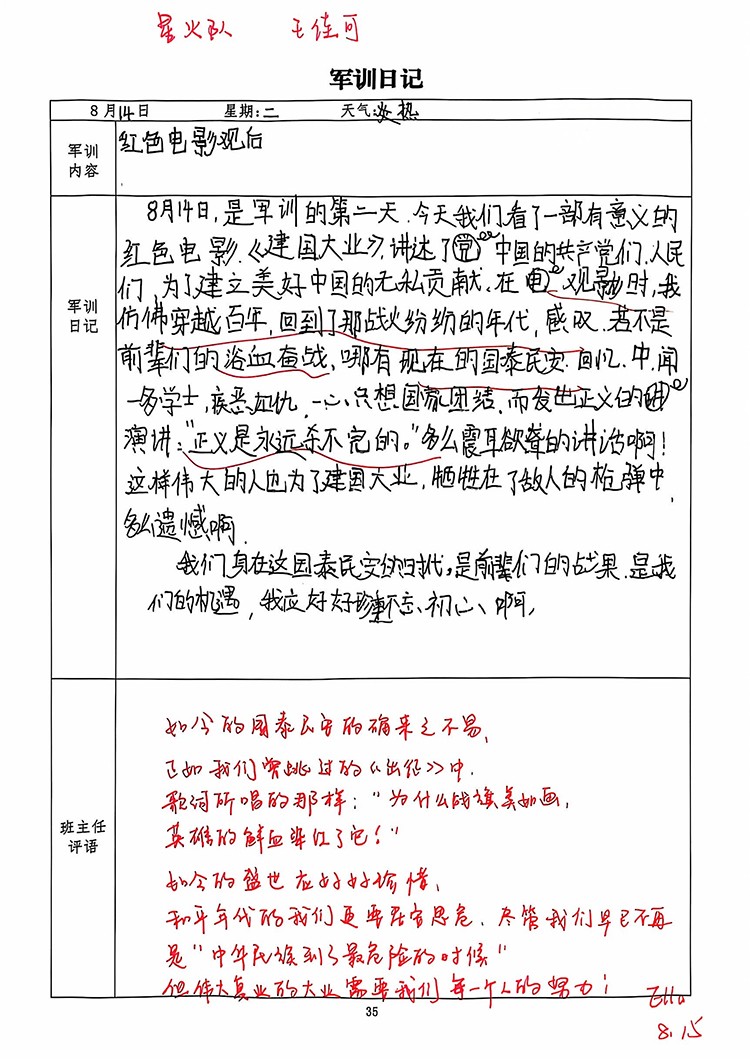 星火队 王佳可
军训日记
8月14日 星期:二 天气:炎热
军训内容
红色电影观后
军训日记
8月14日,是军训的第二天.今天我们看了一部有意义的
红色电影.《建国大业》,讲述了中国的共产党们.人民
们,为了建立美好中国的无私贡献.在观影时,我
仿佛穿越百年,回到了那战火纷纷的年代,感叹.若不是
前辈们的浴血奋战,哪有现在的国泰民安.回忆.中.闻
一多学士,疾恶如仇,一心只想国家团结.而发出正义的
演讲:"正义是永远杀不完的。"多么震耳欲聋的讲话啊!
这样伟大的人也为了建国大业,牺牲在了敌人的枪弹中,
多么遗憾啊.
我们身在这国泰民安的时代,是前辈们的战果.是我
们的机遇,我应好好珍惜不忘、初心、啊,
班主任评语
如今的国泰民安的确来之不易,
正如我们曾跳过的《出征》中.
歌词所唱的那样:"为什么战旗美如画,
英雄的鲜血染红了它!"
如今的盛世应好好珍惜,
和平年代的我们更要居安思危.尽管我们早已不再
是"中华民族到了最危险的时候"
但伟大复业的大业需要我们每一个人的努力!
Ella
8.15
35